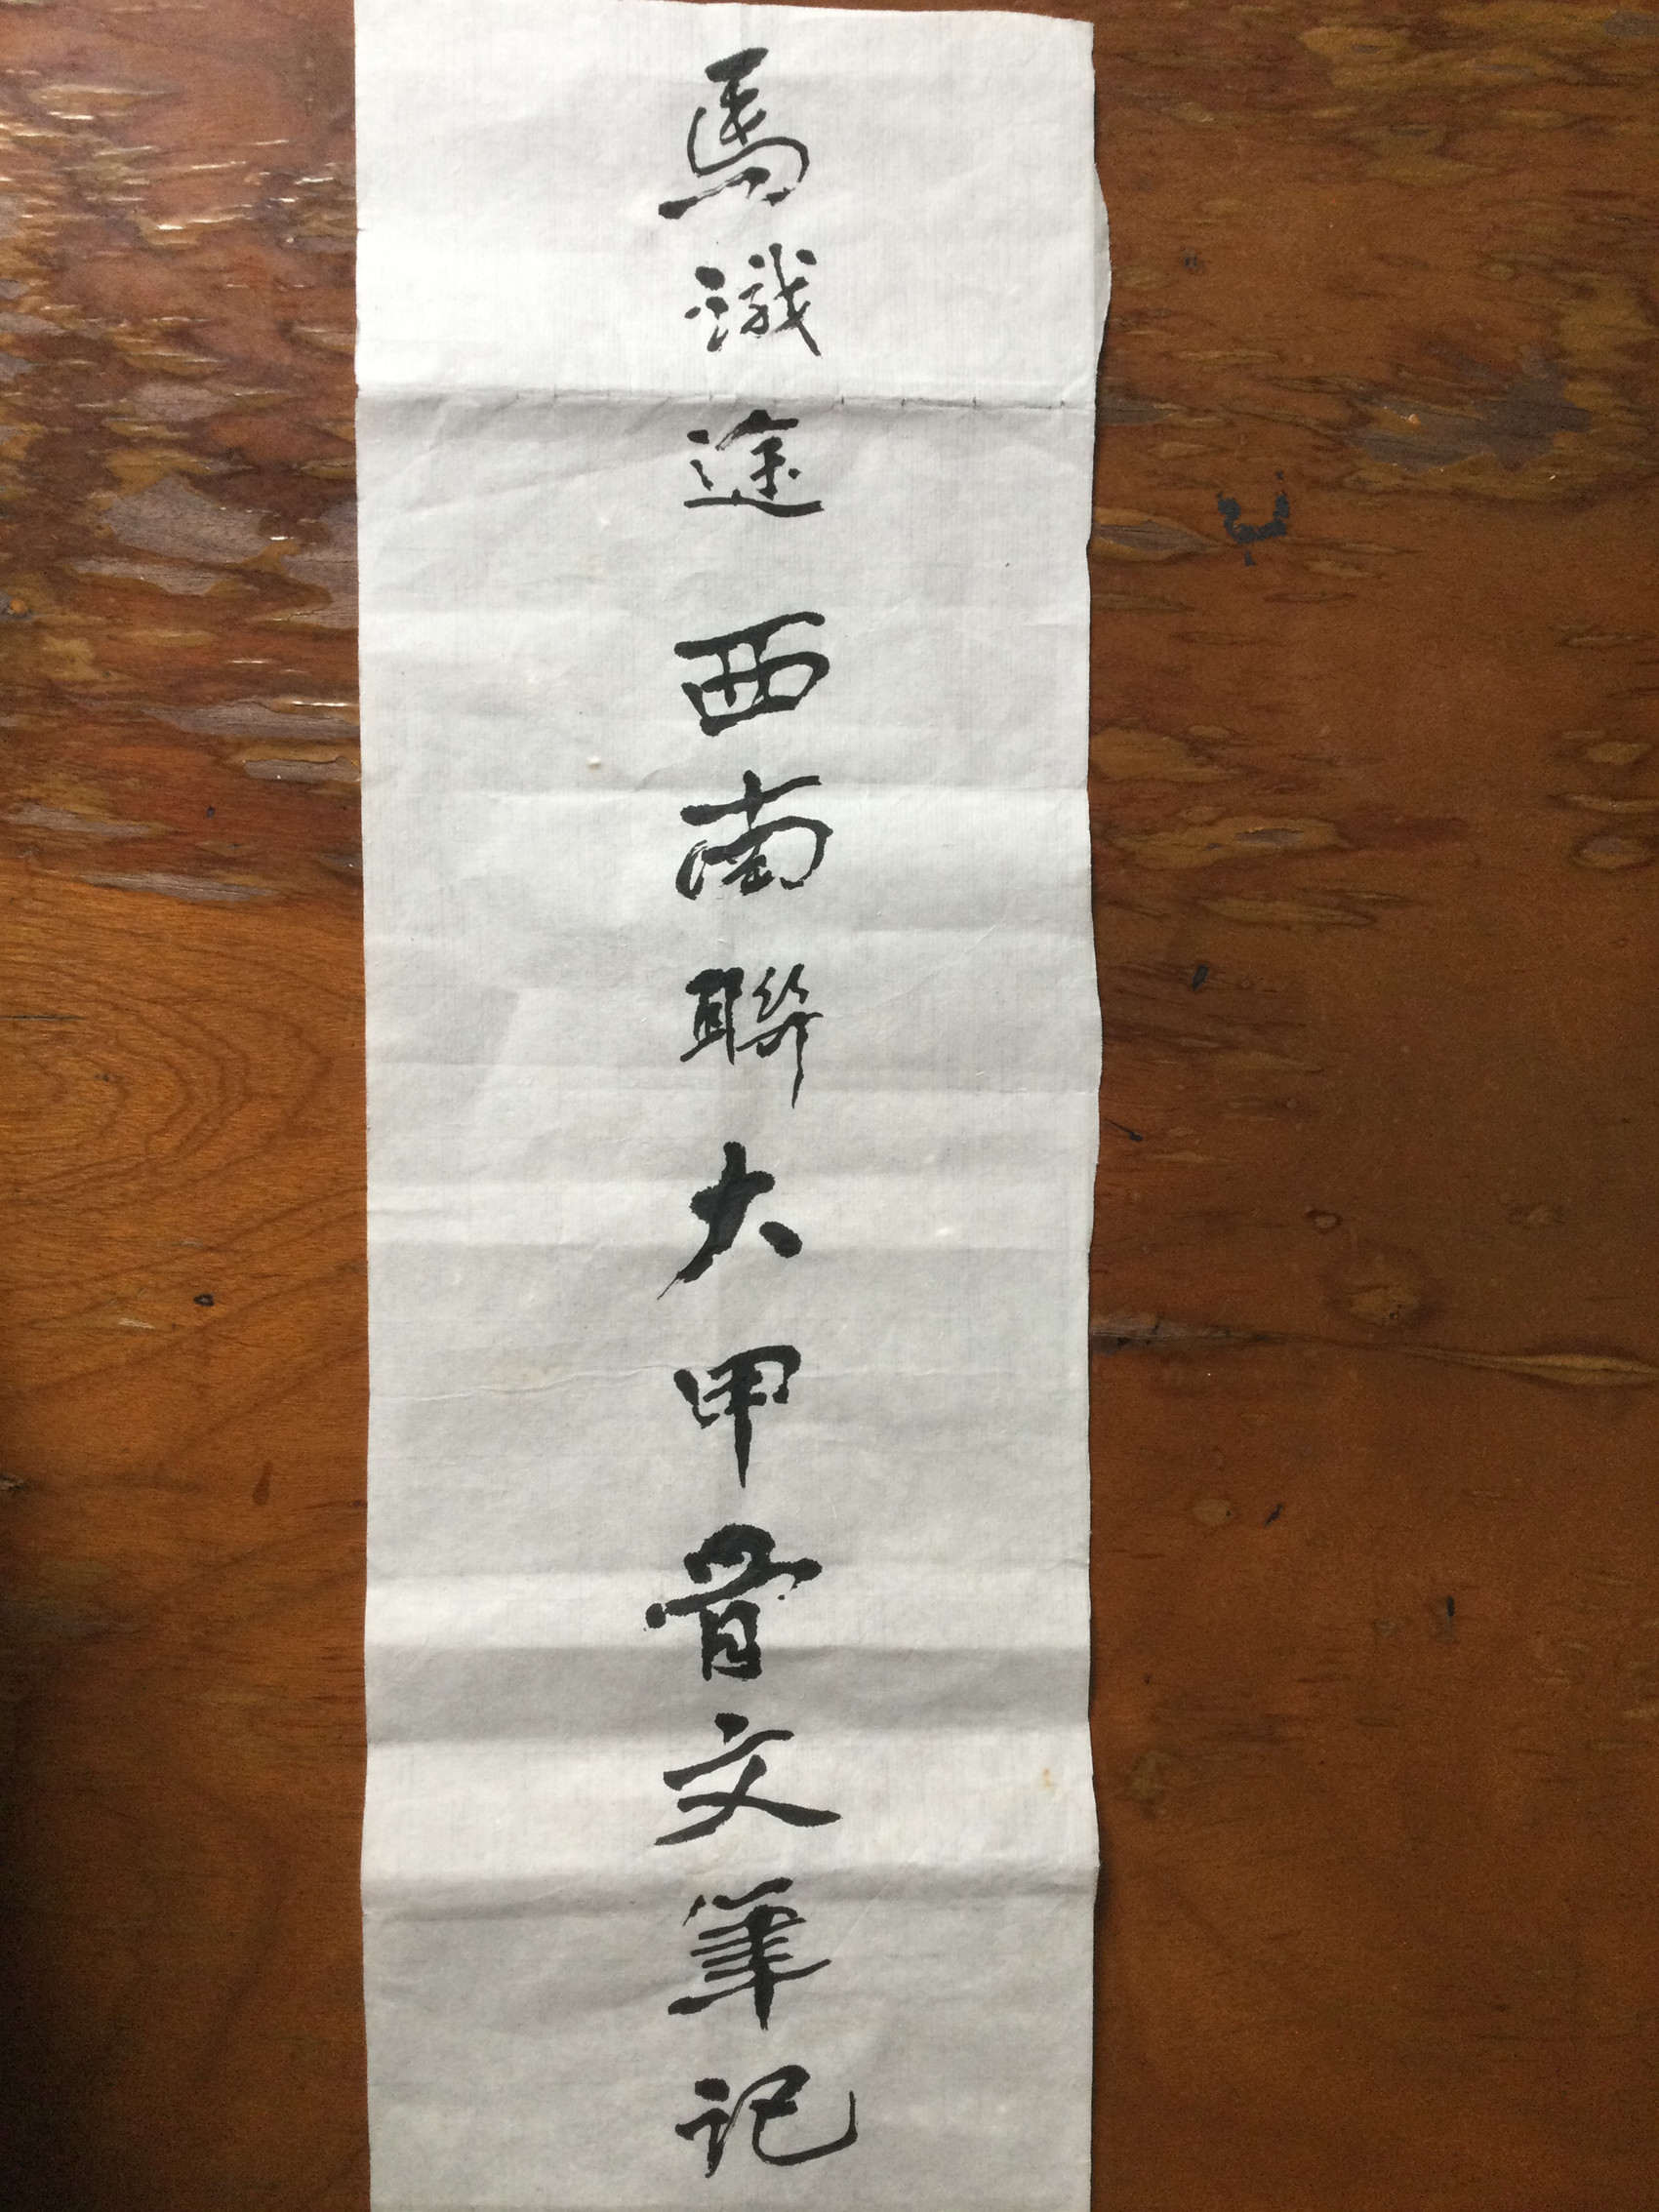 馬識途西南聯大甲骨文筆記